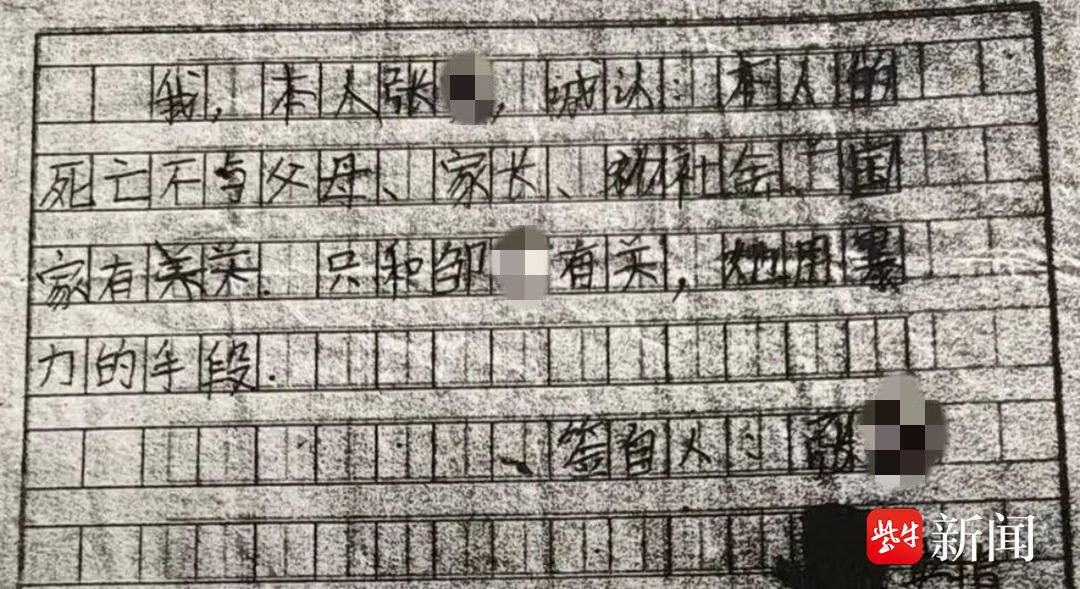 我，本人张，诚认：本人的
死亡不与父母、家长、和社会、国
家有关系.只和邹有关，她用暴
力的手段.
签自人：张
紫牛新闻